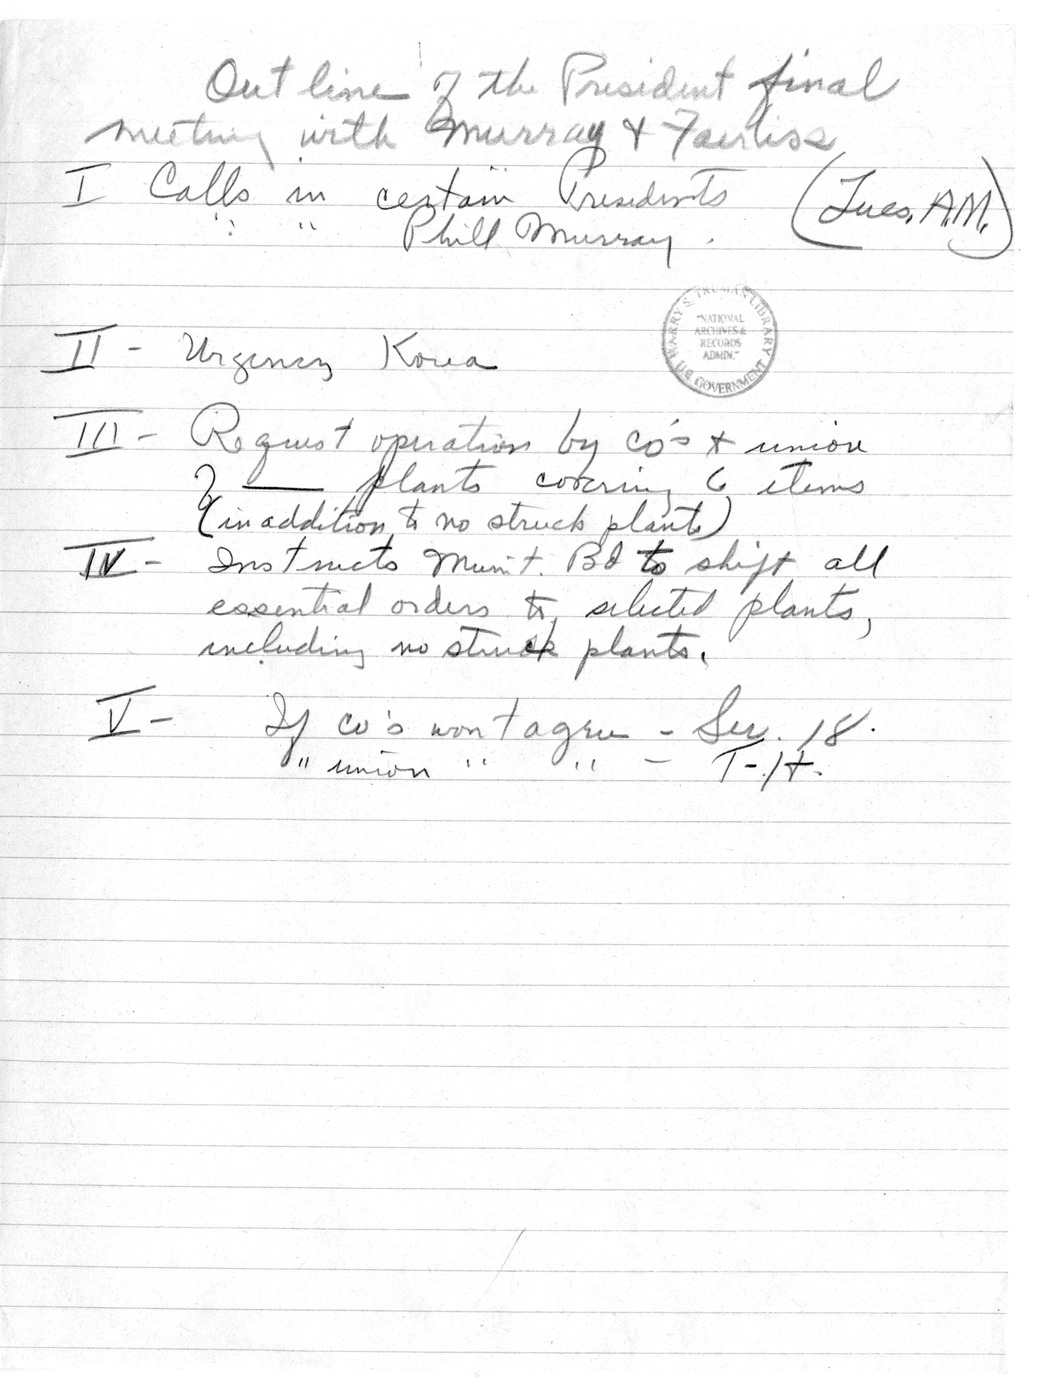 Outline of the President final
meeting with Murray & Fairliss
I Calls in certain Presidents (Tues. A.M.)
" " Phill Murray.
HARRY S. TRUMAN LIBRARY
"NATIONAL
ARCHIVES &
RECORDS
ADMIN."
U.S. GOVERNMENT
II - Urgency Korea
III - Request operation by co's & union
of ___ plants covering 6 items
(in addition to no struck plants)
IV - Instructs Munit. Bd to shift all
essential orders to selected plants,
including no struck plants.
V - If co's wont agree - Sec. 18.
" union " " - T-H.